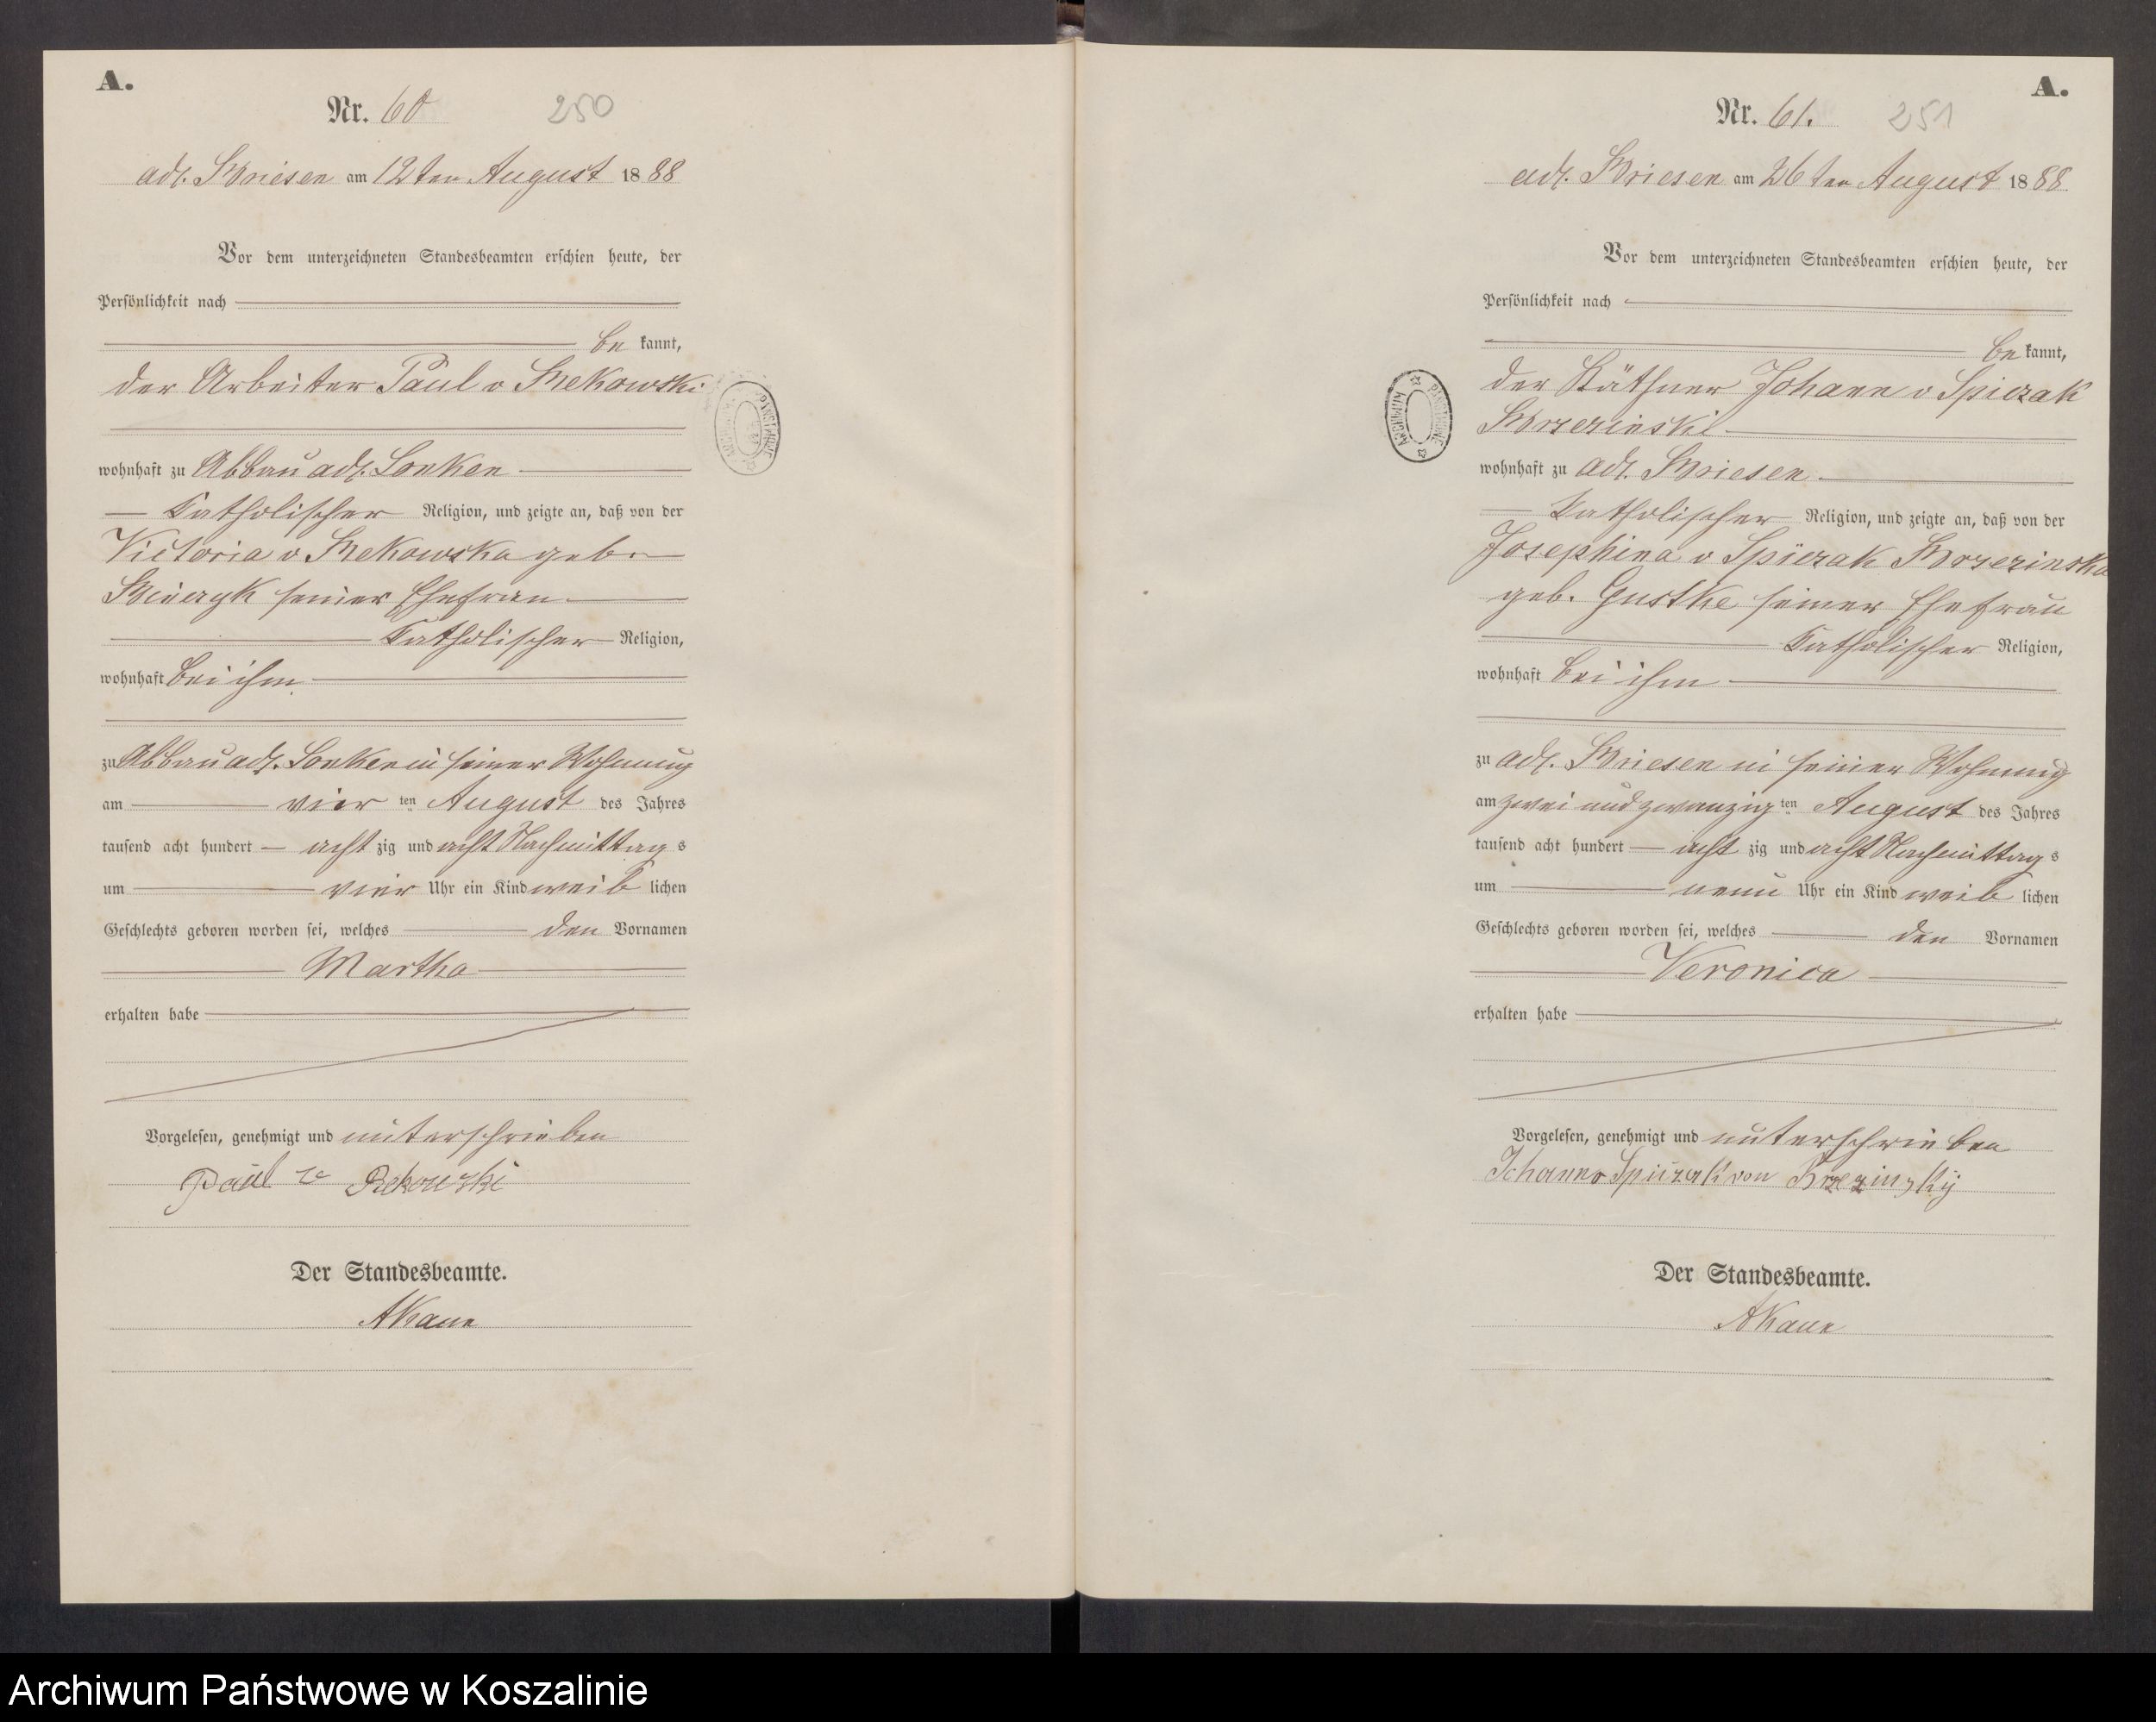 A.
Nr. 60 250
adl. Briesen am 12ten August 1888
Vor dem unterzeichneten Standesbeamten erschien heute, der
Persönlichkeit nach
be kannt,
der Arbeiter Paul v Rekowski
wohnhaft zu Abbau adl. Sonken
Katholischer Religion, und zeigte an, daß von der
Victoria v Rekowska geb.
seiner Ehefrau
Katholischer Religion,
wohnhaft bei ihm
zu Abbau adl. Sonken in seiner Wohnung
am vier ten August des Jahres
tausend acht hundert acht zig und acht Nachmittag s
um vier Uhr ein Kind weib lichen
Geschlechts geboren worden sei, welches den Vornamen
Martha
erhalten habe
Vorgelesen, genehmigt und unterschrieben
Paul v Rekowski
Der Standesbeamte.
A.
Nr. 61. 251
adl. Briesen am 26ten August 1888
Vor dem unterzeichneten Standesbeamten erschien heute, der
Persönlichkeit nach
be kannt,
der Käthner Johann v Spiczak
Brzezinski
wohnhaft zu adl. Briesen
Katholischer Religion, und zeigte an, daß von der
Josephina v Spiczak Brzezinska
geb. Gustke seiner Ehefrau
Katholischer Religion,
wohnhaft bei ihm
zu adl. Briesen in seiner Wohnung
am zwei und zwanzig ten August des Jahres
tausend acht hundert acht zig und acht Nachmittag s
um neun Uhr ein Kind weib lichen
Geschlechts geboren worden sei, welches den Vornamen
Veronica
erhalten habe
Vorgelesen, genehmigt und unterschrieben
Johann v Spiczak von Brzezinzkÿ
Der Standesbeamte.
ARCHIWUM PAŃSTWOWE
Archiwum Państwowe w Koszalinie